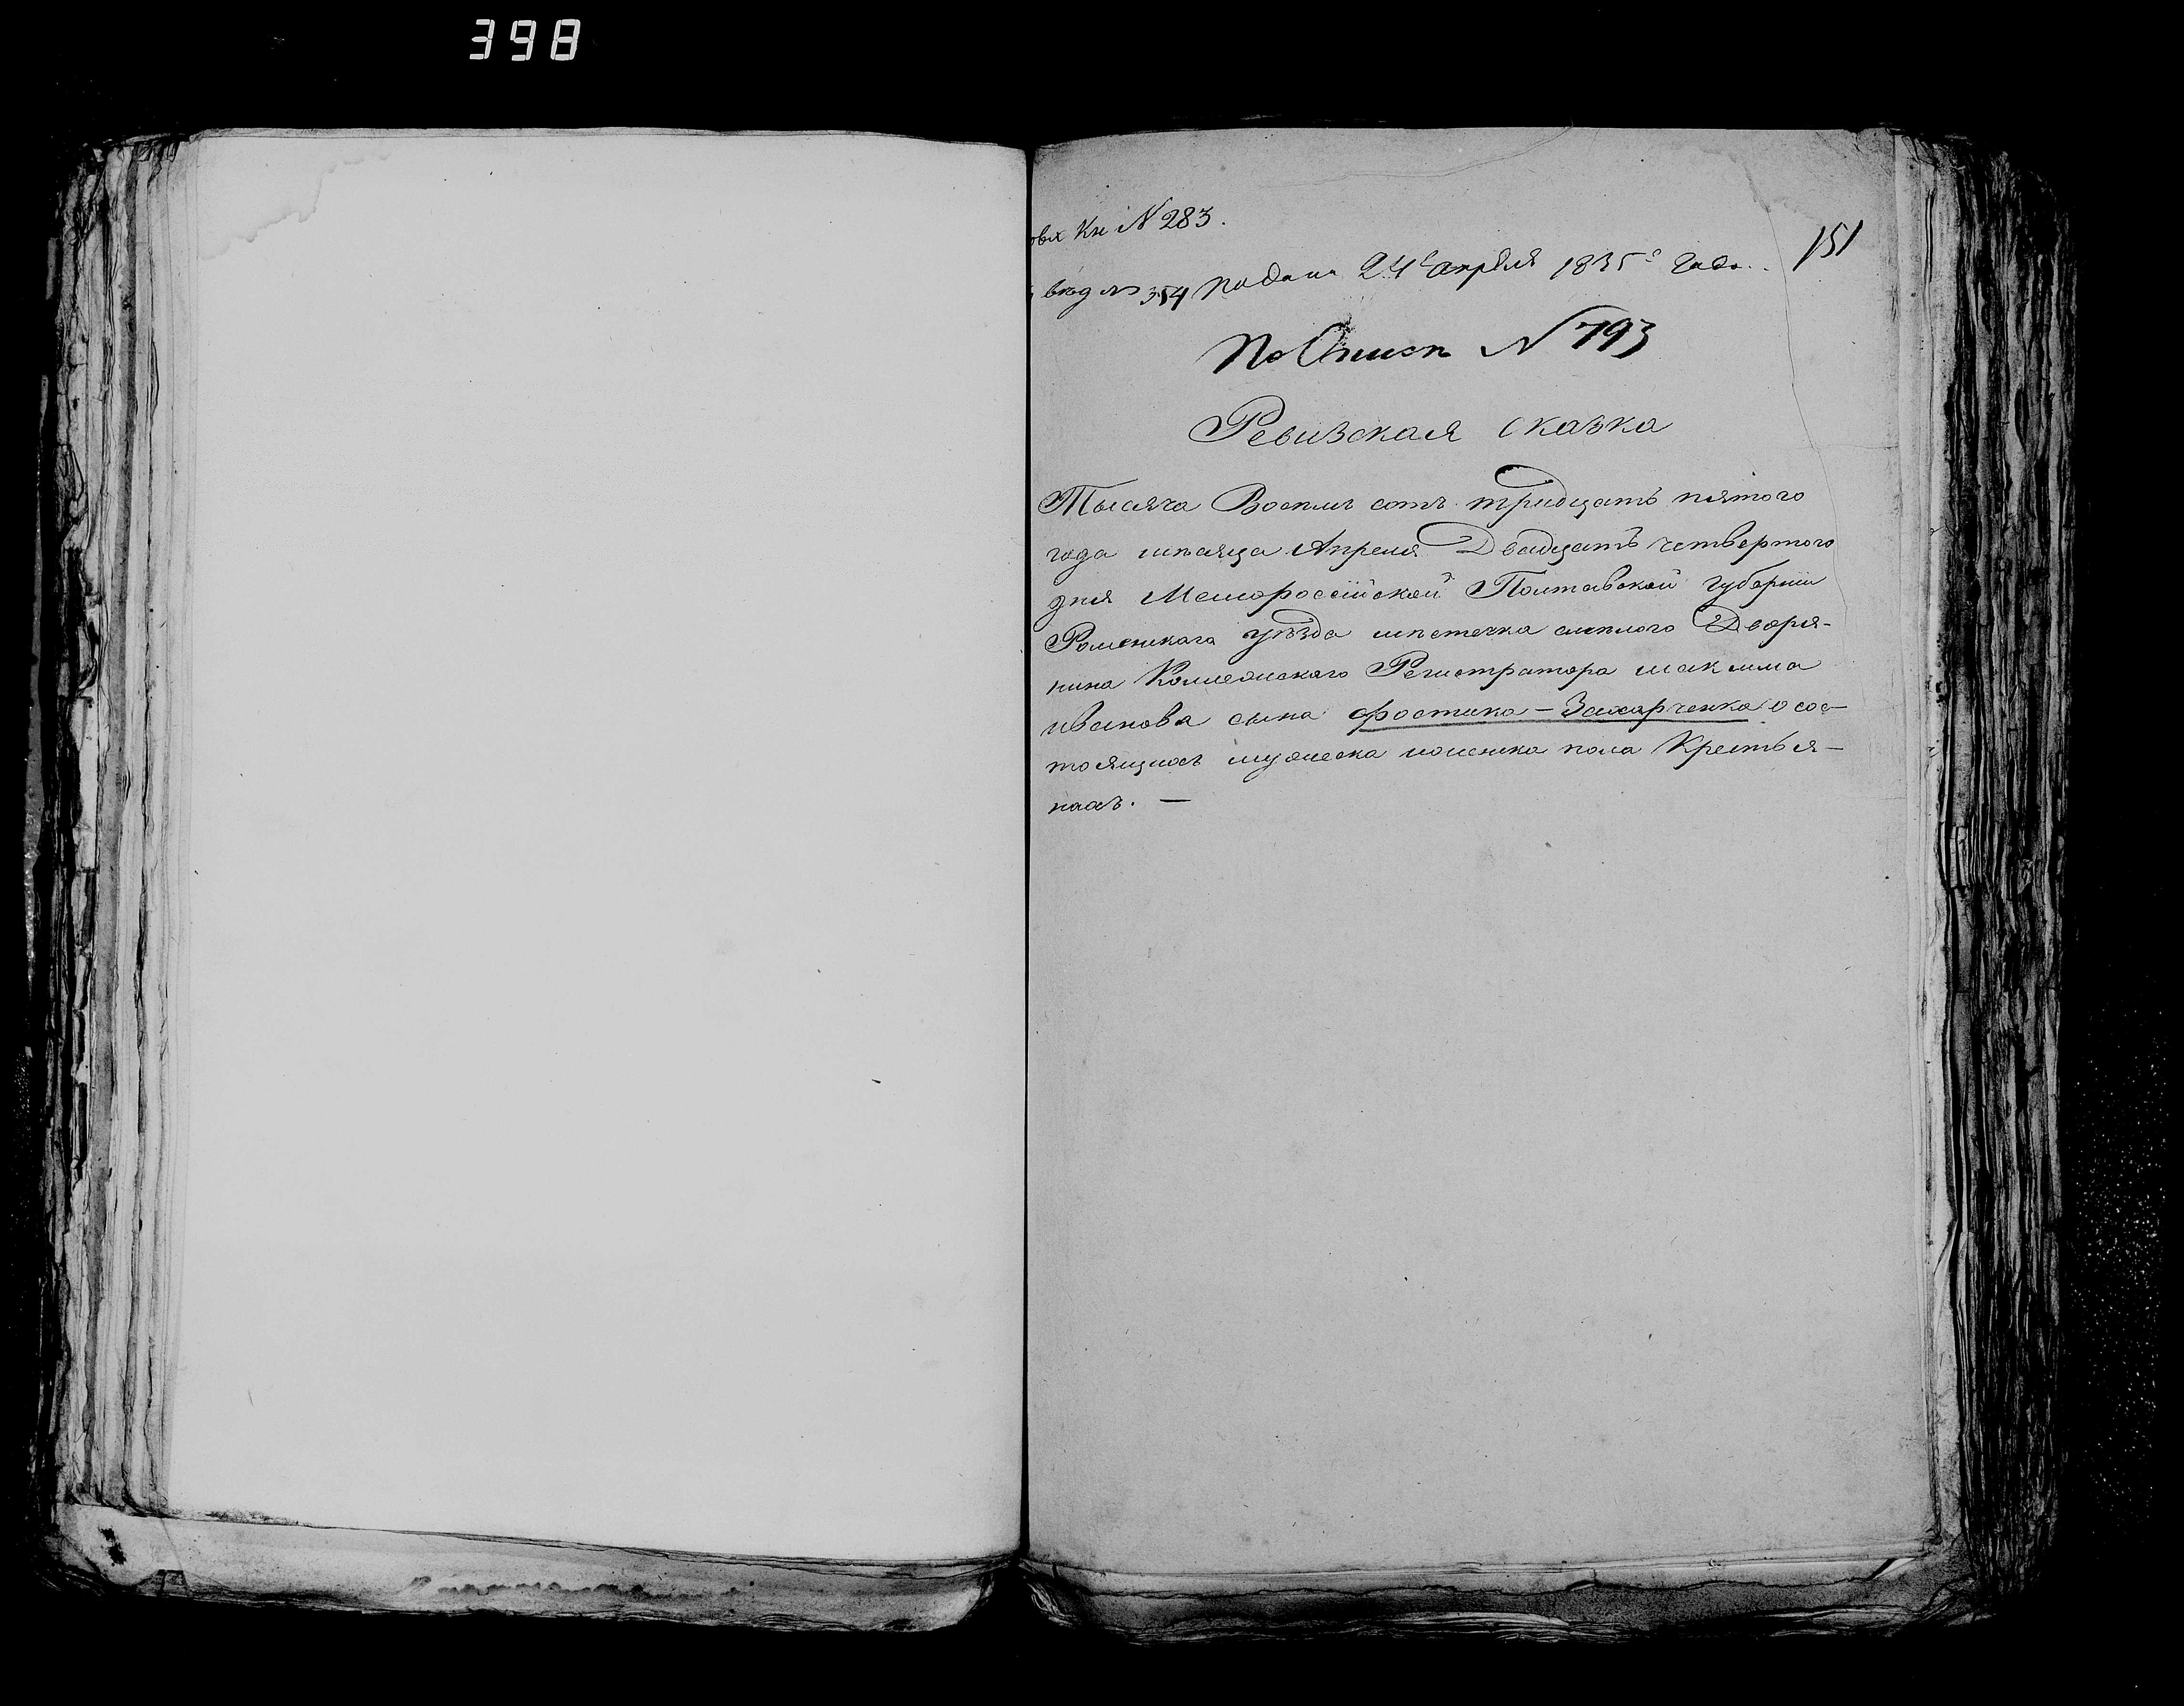 398
Кн N 283.
151
вѣд № 354 подана 24го апрѣля 1835го Года.
По Описи N 793
Ревизская сказка
Тысяча Восемь сотъ тридцать пятого
года мѣсяца Апреля Двадцать четвертого
дня Малороссійской Полтавской губерніи
Роменского уѣзда мѣстечка смелого Дворя-
нина Коллежского Регистратора максима
иванова сына фостика - Захарченка о сос-
тоящихъ мужеска иженска пола Крестья-
нахъ. —